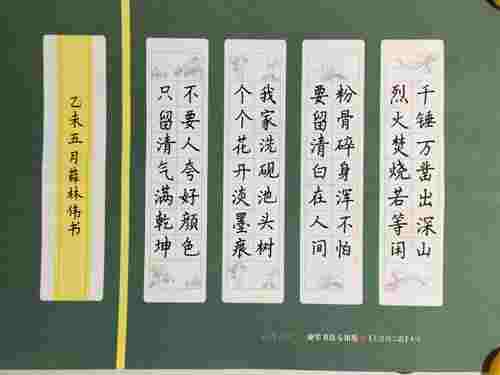 千锤万凿出深山
烈火焚烧若等闲
粉骨碎身浑不怕
要留清白在人间
我家洗砚池头树
个个花开淡墨痕
不要人夸好颜色
只留清气满乾坤
乙未五月薛林伟书